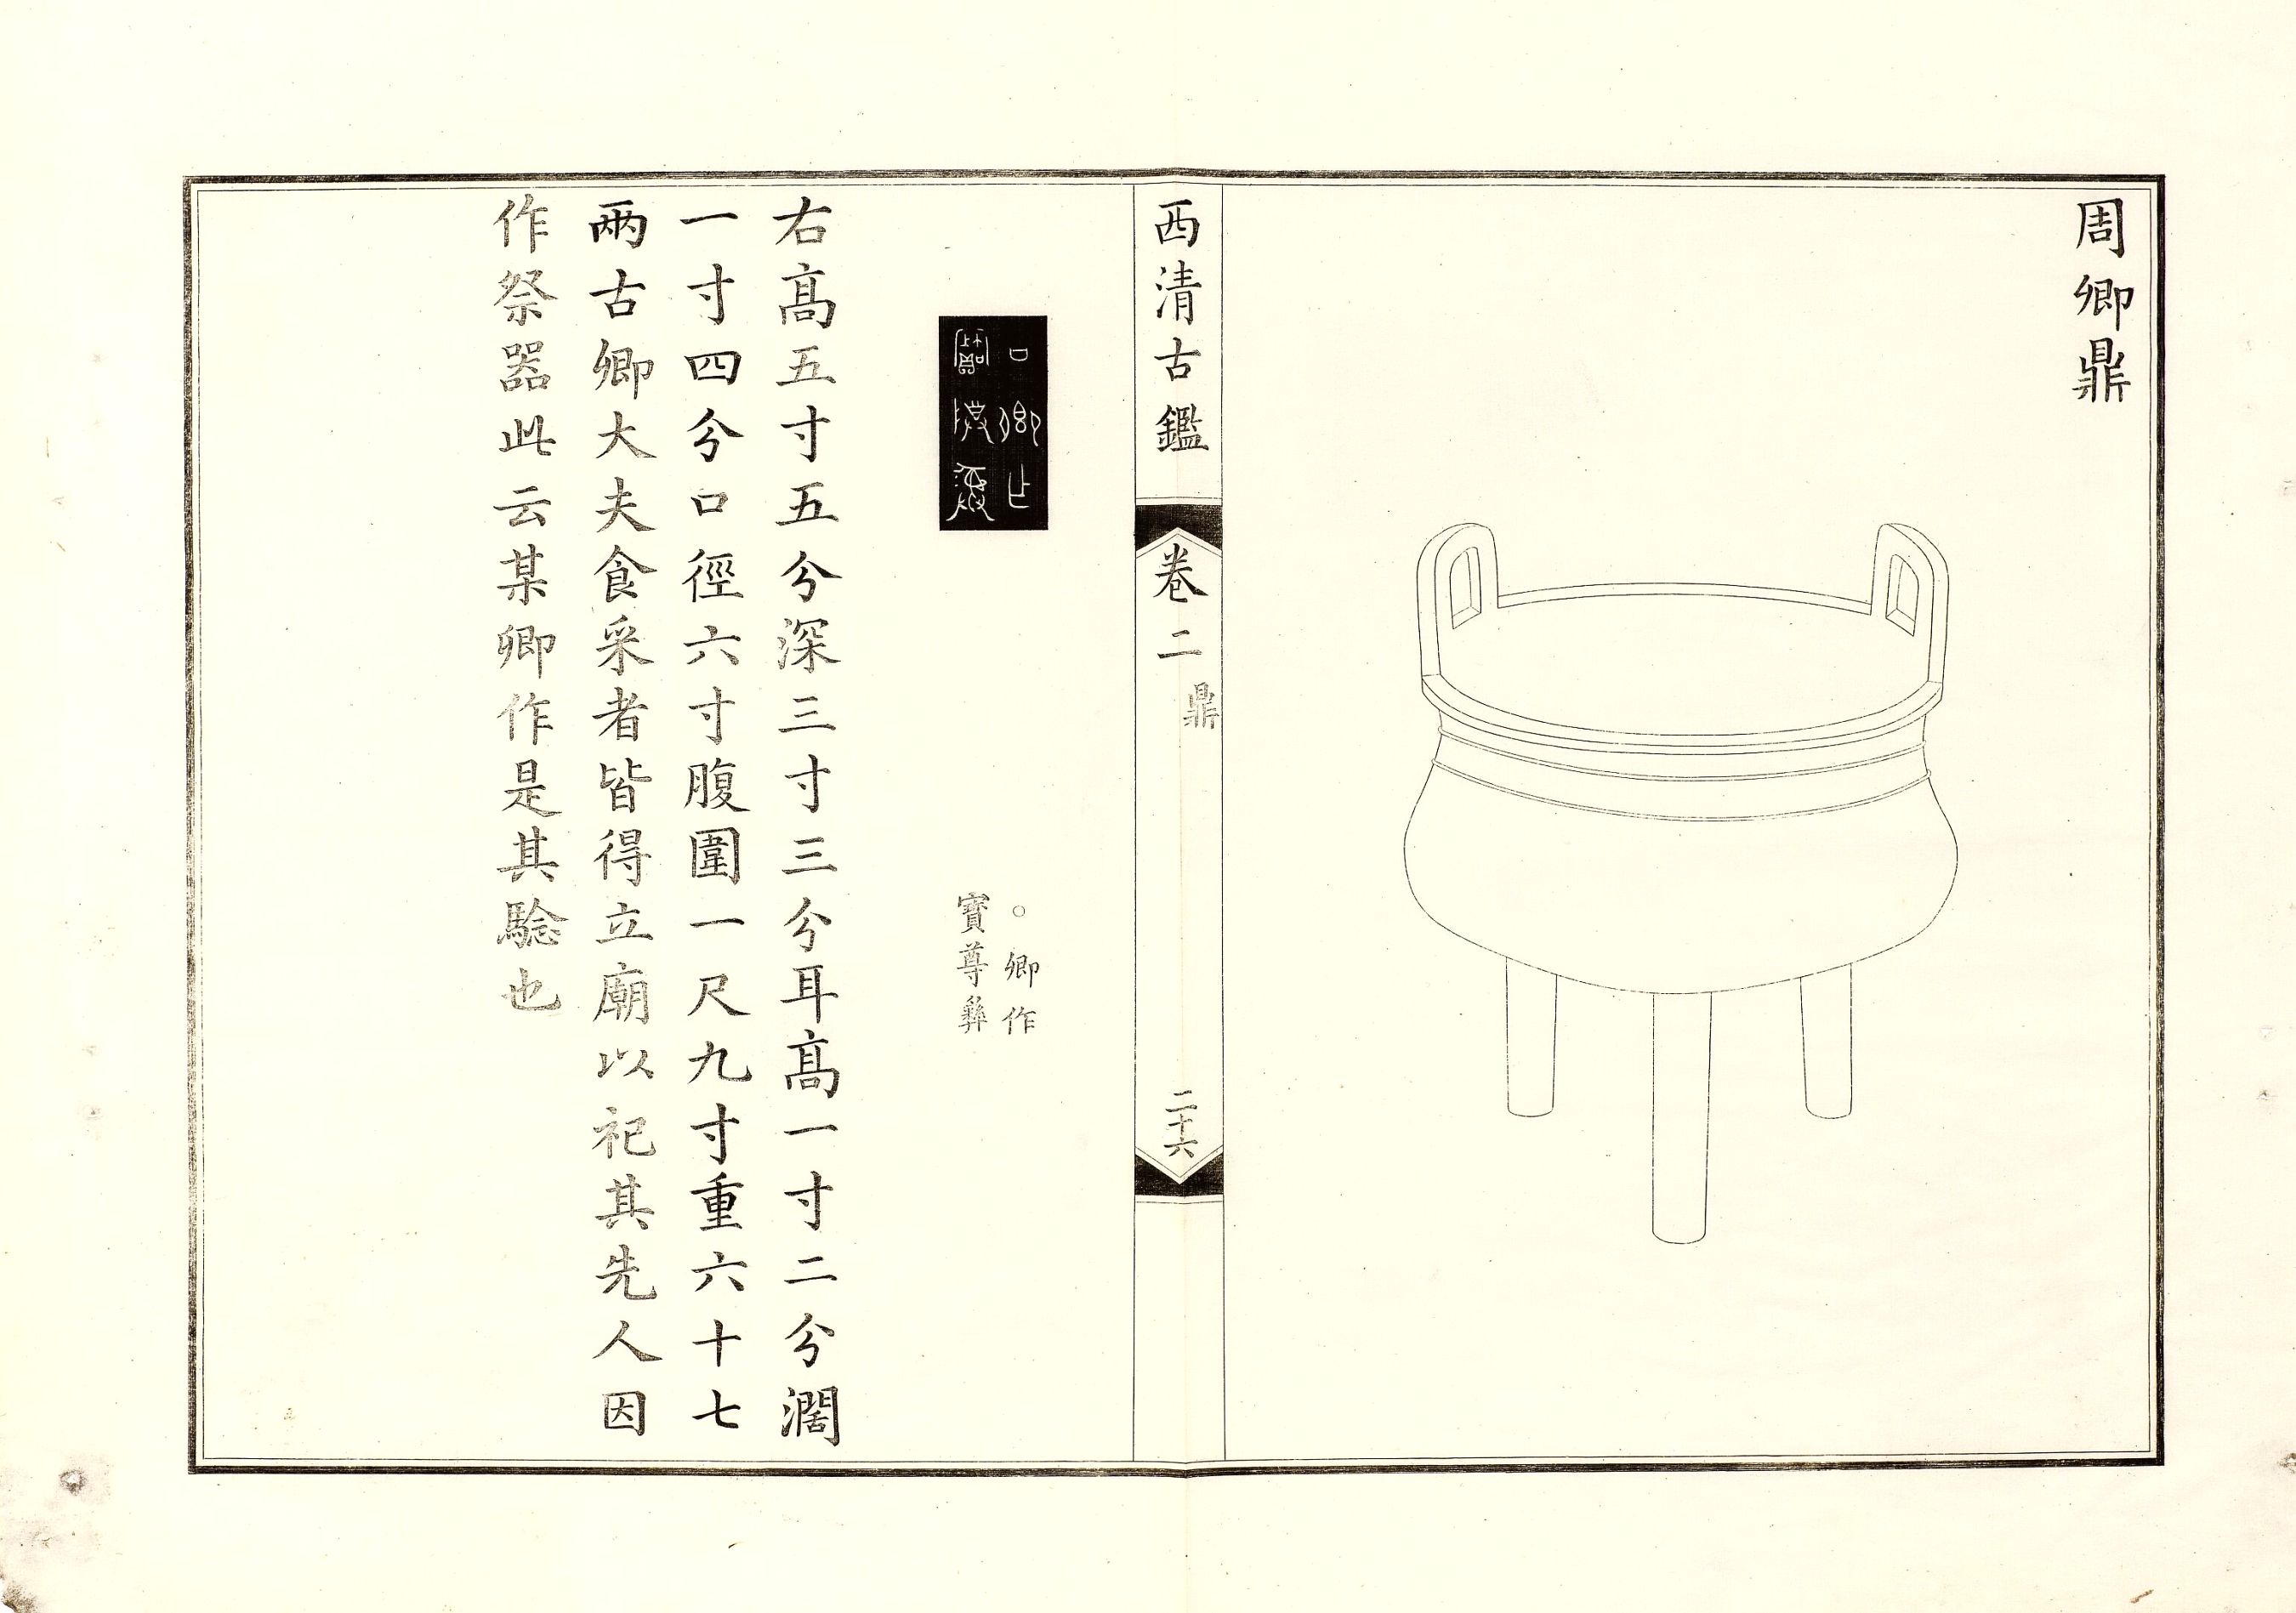 周卿鼎
西清古鑑
卷二
鼎
二十六
○卿作
寶尊彝
右高五寸五分深三寸三分耳高一寸二分濶
一寸四分口徑六寸腹圍一尺九寸重六十七
兩古卿大夫食采者皆得立廟以祀其先人因
作祭器此云某卿作是其騐也